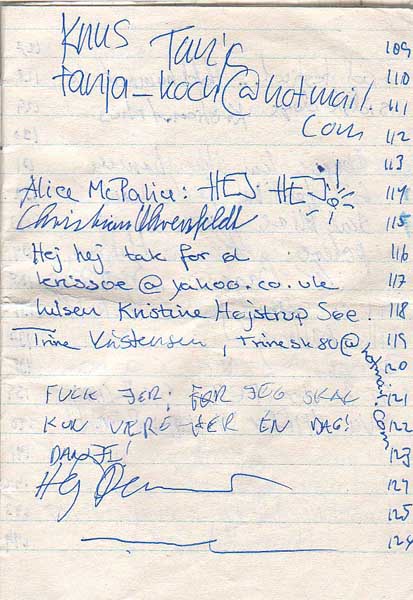 Knus Tanja 109
tanja_koch@hotmail. 110
com 111
112
113
Alice McPalice: HEJ HEJ! 114
Christian 115
Hej hej tak for d 116
krissoe@yahoo.co.uk 117
hilsen Kristine Højstrup Søe. 118
Trine Kristensen, trinesk80@hotmail.com 119
120
FUCK JER, FOR JEG SKAL 121
KUN VÆRE HER EN DAG! 122
123
Hej 124
125
126